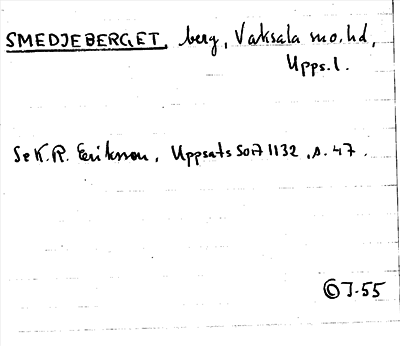 SMEDJEBERGET, berg, Vaksala sn o. hd,
Upps. l.
Se K.R. Erikson, Uppsats SOA 1132, s. 47.
©J-55